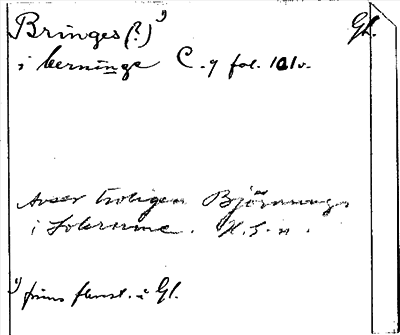 Bringes (?) 1)
Gl.
i berninge C. 9 fol. 101v.
Avser troligen Björnunge
i Sokerume. H.S-n.
1) finns flerst. i Gl.